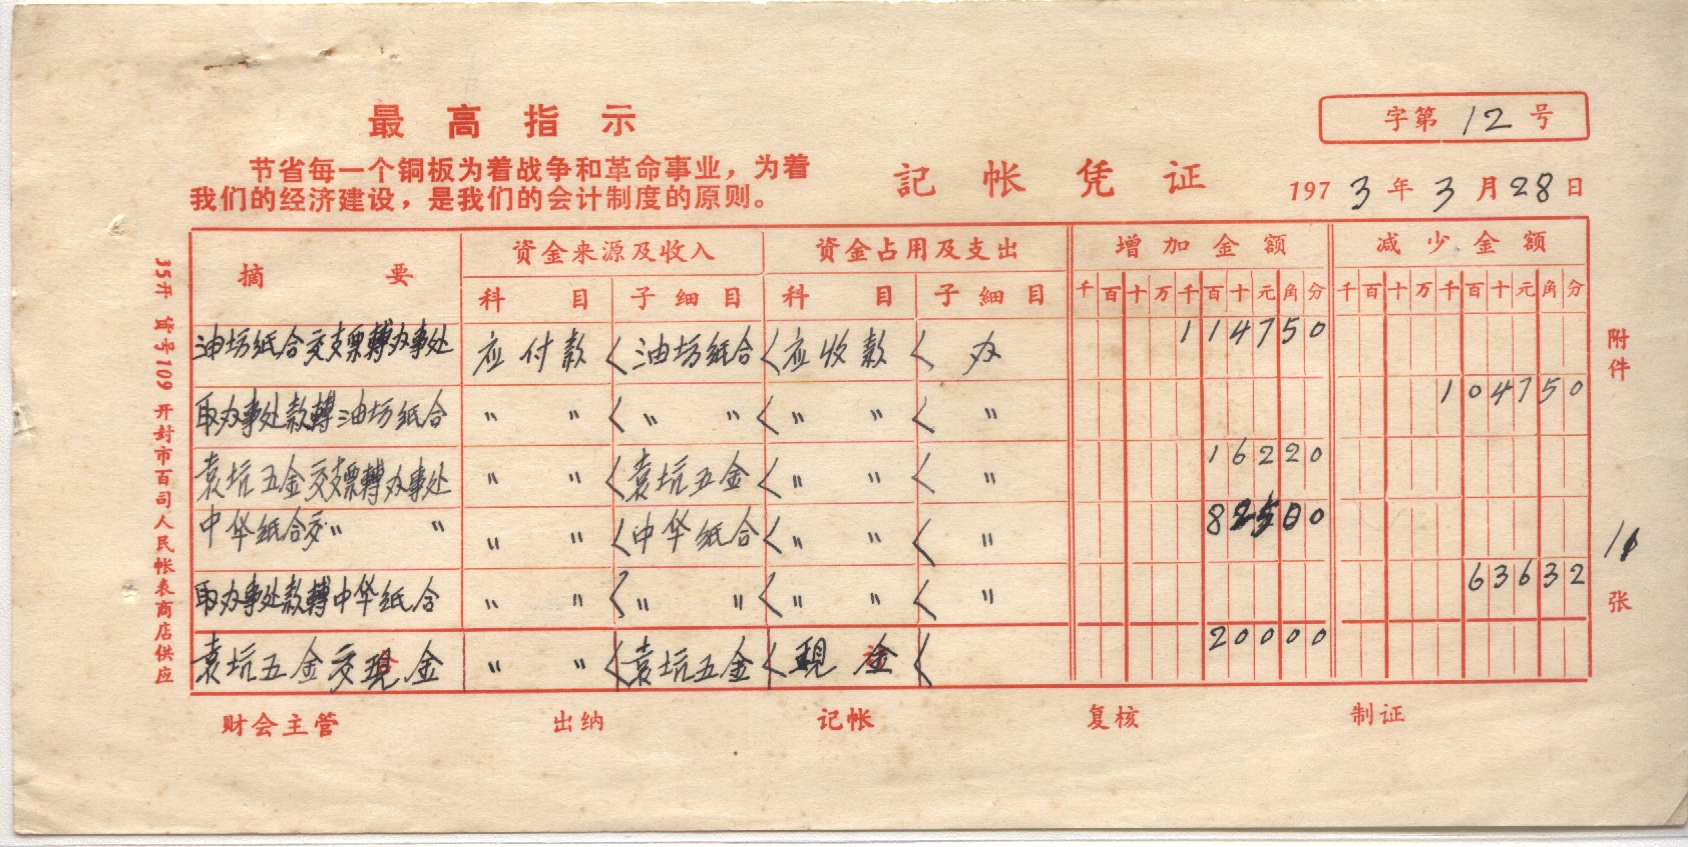 最高指示
节省每一个铜板为着战争和革命事业，为着
我们的经济建设，是我们的会计制度的原则。
記帐凭证
字第12号
1973年3月28日
摘要 资金来源及收入 资金占用及支出 增加金额 减少金额
科目 子细目 科目 子細目 千百十万千百十元角分 千百十万千百十元角分
油坊纸合交支票轉办事处 应付款 油坊纸合 应收款 办 114750
取办事处款轉油坊纸合 〃 〃 〃 〃 〃 〃 〃 104750
袁坑五金交支票轉办事处 〃 〃 袁坑五金 〃 〃 〃 16220
中华纸合交〃 〃 〃 〃 中华纸合 〃 〃 〃 82500
取办事处款轉中华纸合 〃 〃 〃 〃 〃 〃 〃 63632
袁坑五金交現金 〃 〃 袁坑五金 現金 20000
财会主管 出纳 记帐 复核 制证
35开 货号109 开封市百司人民帐表商店供应
附件
张